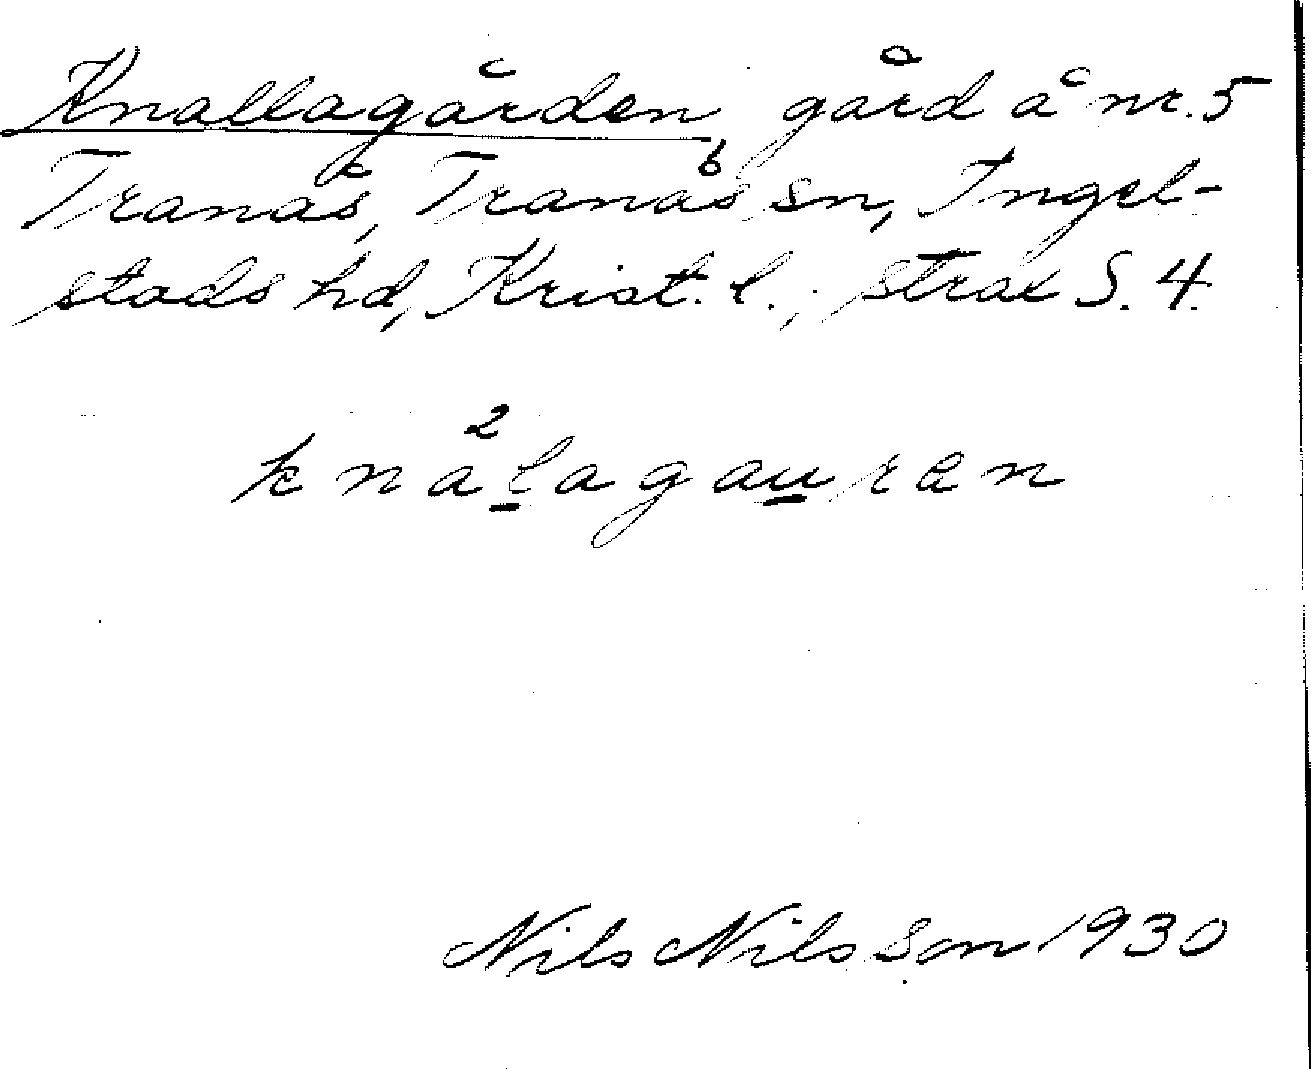 Knallagården, gård å nr. 5
Tranås, Tranås sn, Ingel-
stads hd, Krist. l.; strax S. 4.
knå²lagauren
Nils Nilsson 1930